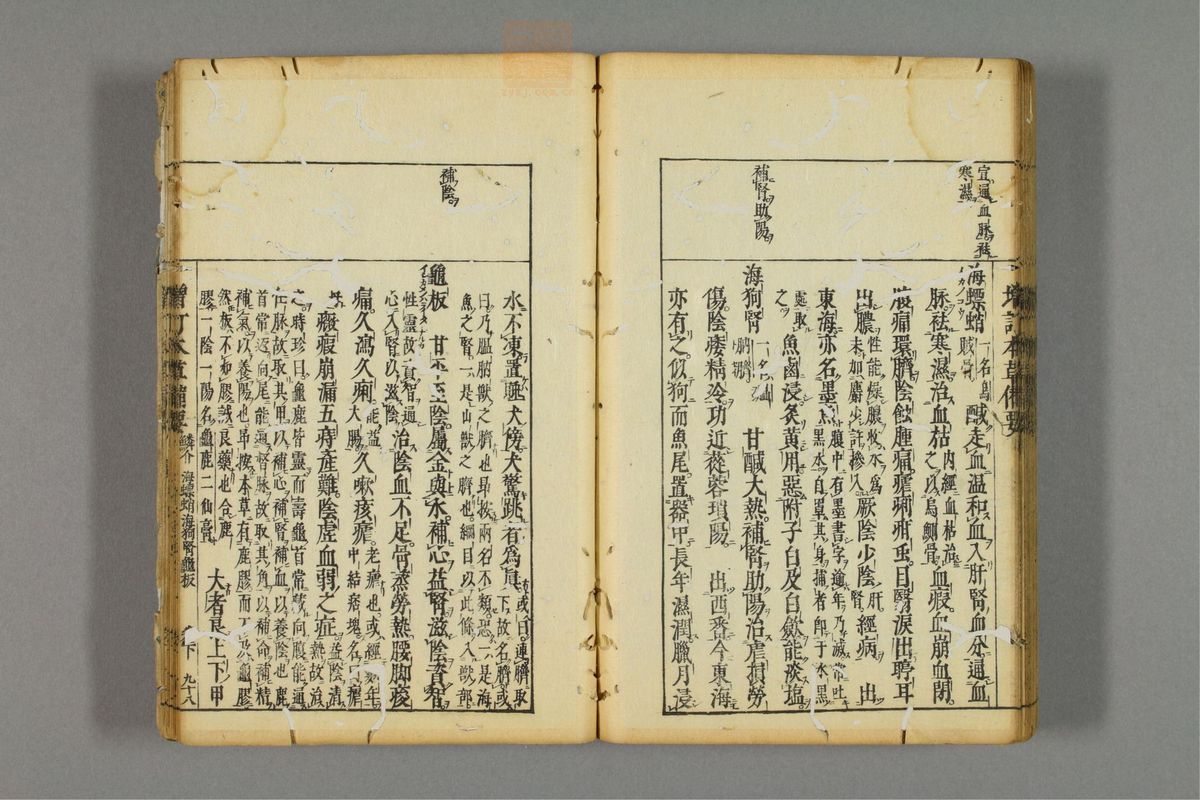 宜通血脉祛
寒濕
補腎助陽
海螵蛸 一名烏
賊骨 鹹走血温和血入肝腎血分通血
脉祛寒濕治血枯 内經血枯治
之以烏鰂骨 血瘕血崩血閉
腹痛環臍陰蝕腫痛瘧痢疳蟲目腎淚出聤耳
出膿 性能燥膿收水為
末加麝少許摻入 厥陰少陰 肝腎 經病 出
東海亦名墨魚 腹中有墨書字逾年乃滅常吐
黑水自罩其身捕者即于水黑
處取
之 魚鹵浸炙黄用惡附子白及白斂能淡塩
海狗腎 一名膃
肭臍 甘鹹大熱補腎助陽治虛損勞
傷陰痿精冷功近蓯蓉瑣陽 出西番今東海
亦有之似狗而魚尾置器中長年濕潤臘月浸
補陰
水不凍置睡犬傍犬驚跳者為真 或曰連臍取
下故名臍或
曰乃膃肭獸之臍也昂按兩名不類恐一是海
魚之腎一是山獸之臍也綱目以此條入獸部
龜板 甘平至陰屬金與水補心益腎滋陰資智
性靈故資智通
心入腎以滋陰 治陰血不足骨蒸勞熱腰脚痠
痛久瀉久痢 能益
大腸 久嗽痎瘧 老瘧也或經數年
中結痞塊名瘧
母 癥瘕崩漏五痔產難陰虛血弱之症 益陰清
熱故治
之時珍曰龜鹿皆靈而壽龜首常藏向腹能通
任脉故取其甲以補心補腎補血以養陰也鹿
首常返向尾能通督脉故取其角以補命補精
補氣以養陽也昂按本草有鹿膠而不及龜膠
然板不如膠誠良藥也合鹿
膠一陰一陽名龜鹿二仙膏 大者良上下甲
鱗介 海螵蛸海狗腎龜板
下 九十八